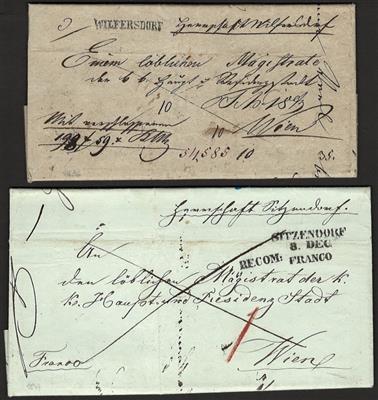 WILFERSDORF Herrschaft Wilfersdorf
Einem löblichen Magistrate
der k k Haupt u Residenzstadt
10
Wien
10
Mit
54,585 10
Herrschaft Sitzendorf
SITZENDORF
8. DEC
RECOM: FRANCO
An
den löblichen Magistrat der k.
k. Haupt und Residenz Stadt
Franco
Wien